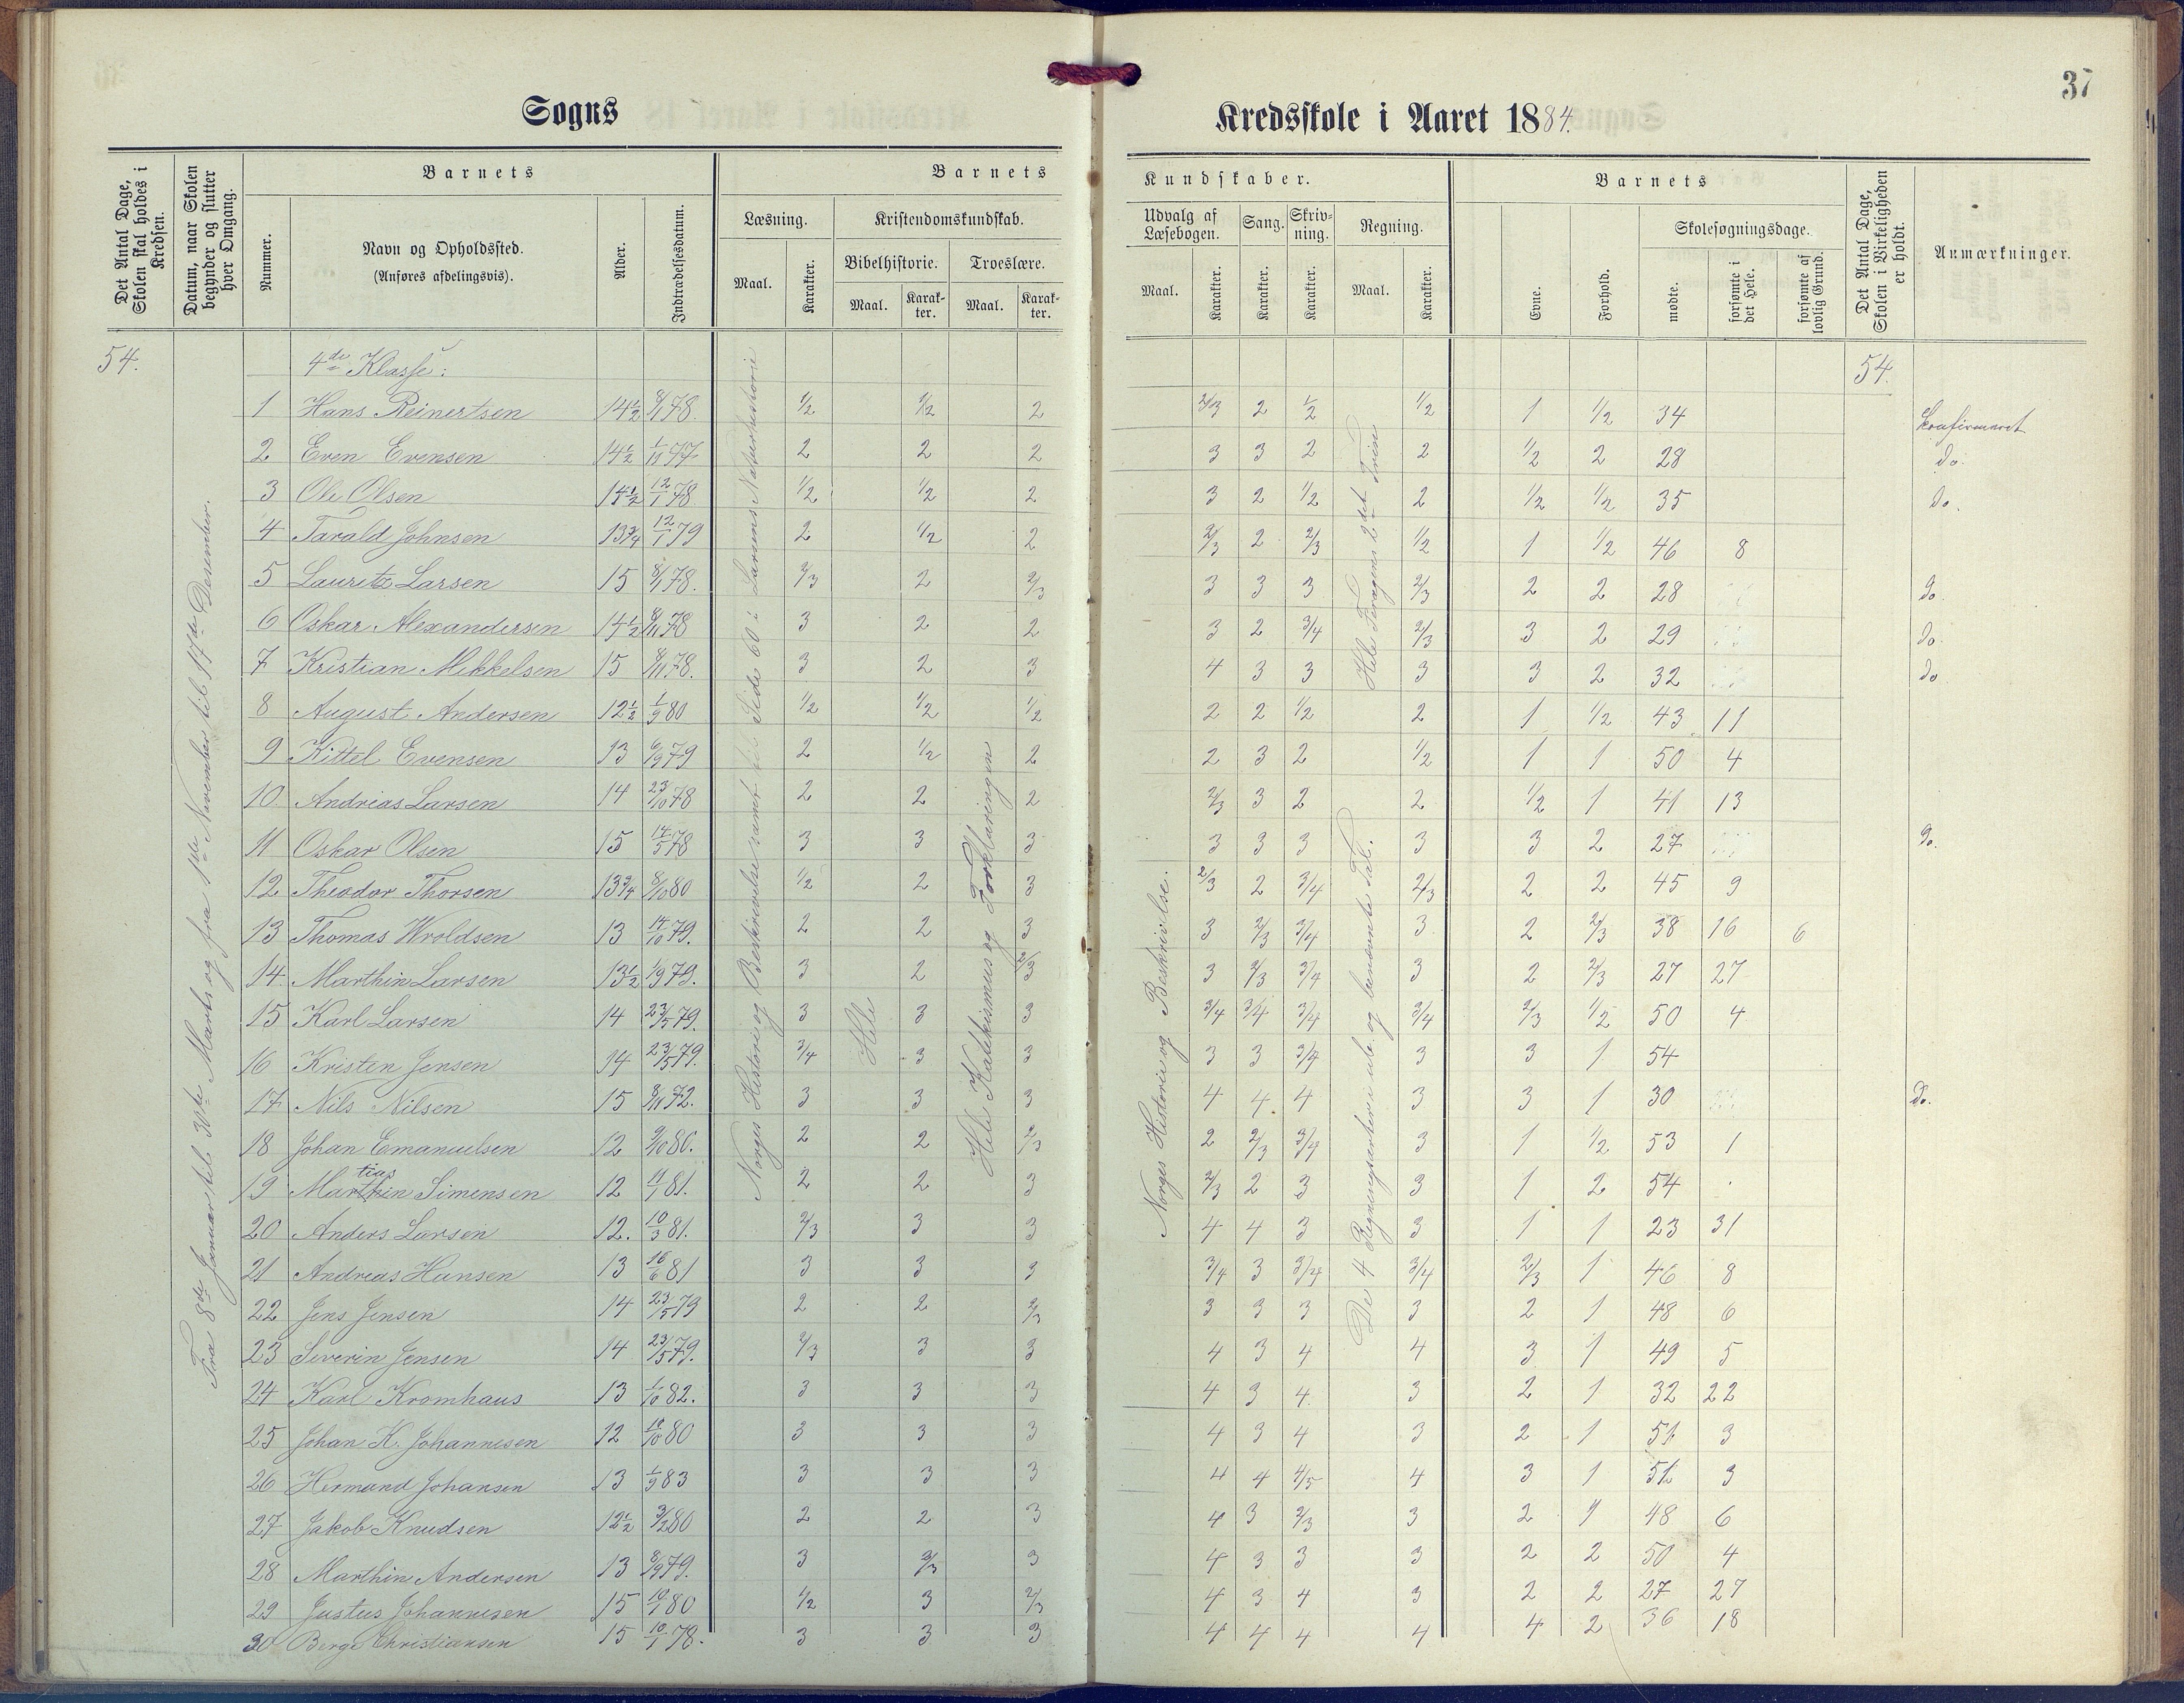 37
Sogns
Kredsskole i Aaret 1884.
Det Antal Dage, Skolen skal holdes i Kredsen.
Datum, naar Skolen begynder og slutter hver Omgang.
Barnets
Nummer.
Navn og Opholdssted.
(Anføres afdelingsvis).
Alder.
Indtrædelsesdatum.
Barnets
Læsning.
Maal.
Karakter.
Kristendomskundskab.
Bibelhistorie.
Maal.
Karakter.
Troeslære.
Maal.
Karakter.
Kundskaber.
Udvalg af Læsebogen.
Maal.
Karakter.
Sang.
Karakter.
Skrivning.
Karakter.
Regning.
Maal.
Karakter.
Barnets
Evne.
Forhold.
Skolesøgningsdage.
mødte.
forsømte i det Hele.
forsømte af lovlig Grund.
Det Antal Dage, Skolen i Virkeligheden er holdt.
Anmærkninger.
54. 4de Klasse: 54.
Fra 8de Januar til 31te Marts og fra 1ste November til 17de Desember.
Norges Historie og Beskrivelse samt til Side 60 i Sørums Naturhistorie
Hele
Hele Katekismus og Forklaringen
Norges Historie og Beskrivelse.
De 4 Regningsarter i ube. og benævnte Tal.
Hele 2det Trin
1 Hans Reinertsen 14½ 8/1 78. 1/2 1/2 2 2/3 2 1/2 1/2 1 1/2 34 Konfirmeret
2 Even Evensen 14½ 1/10 77 2 2 2 3 3 2 2 1/2 2 28 do.
3 Ole Olsen 14½ 12/1 78 1/2 1/2 2 3 2 1/2 2 1/2 1/2 35 do.
4 Tarald Johnsen 13¾ 12/1 79 2 1/2 2 2/3 2 2/3 1/2 1 1/2 46 8
5 Lauritz Larsen 15 8/1 78. 2/3 2 2/3 3 3 3 2/3 2 2 28 do.
6 Oskar Alexandersen 14½ 8/11 78 3 2 2 3 2 3/4 2/3 3 2 29 do.
7 Kristian Mikkelsen 15 8/11 78. 3 2 3 4 3 3 3 3 2 32 do
8 August Andersen 12½ 1/9 80 1/2 1/2 1/2 2 2 1/2 2 1 1/2 43 11
9 Kittel Evensen 13 6/9 79 2 1/2 2 2 3 2 1/2 1 1 50 4
10 Andreas Larsen 14 23/10 78 2 2 2 2/3 3 2 2 1/2 1 41 13
11 Oskar Olsen 15 14/5 78 3 3 3 3 3 3 3 3 2 27 do.
12 Theodor Thorsen 13¾ 8/10 80 1/2 2 3 2/3 2 3/4 2/3 2 2 45 9
13 Thomas Wroldsen 13 14/10 79. 2 2 3 3 2/3 3/4 3 2 2/3 38 16 6
14. Marthin Larsen 13½ 1/9 79. 3 2 2/3 3 2/3 3/4 3 2 2/3 27 27
15 Karl Larsen 14 23/5 79. 3 3 3 3/4 3/4 3/4 3/4 2/3 1/2 50 4
16 Kristen Jensen 14 23/5 79. 3/4 3 3 3 3 3/4 3 3 1 54
17 Nils Nilsen 15 8/11 72. 3 3 3 4 4. 4 3 3 1 30 do.
18 Johan Emanuelsen 12 9/10 80. 2 2 2/3 2 2/3 3/4 3 1 1/2 53 1
19 Martias Simensen 12 11/1 81. 2 2 3 2/3 2 3 3 1 2 54
20 Anders Larsen 12. 10/3 81. 2/3 3 3 4 4 3 3 1 1 23 31
21 Andreas Hansen 13 16/6 81 3 3 3 3/4 3 3/4 3/4 2/3 1 46 8
22 Jens Jensen 14 23/5 79 2 2 2/3 3 3 3 3 2 1 48 6
23 Severin Jensen 14 23/5 79. 2/3 3 3 4 3 4 4 3 1 49 5
24 Karl Kromhaus 13 1/10 82. 3 3 3 4 3 4. 3 2 1 32 22
25 Johan K. Johannesen 12 10/10 80 3 3 3 4 3 4 3 2 1 51 3
26 Hermand Johansen 13 1/9 83 3 3 3 4 4 4/5 4 3 1 51 3
27 Jakob Knudsen 12½ 3/2 80 2 2 3 4 3 2/3 3 2 1 48 6
28 Marthin Andersen 13 8/9 79. 3 2/3 3 4 3 3 3 2 2 50 4
29 Justus Johannesen 15 10/1 80 1/2 3 2/3 4 3 4 3 2 2 27 27
30 Berge Christiansen 15 10/1 78. 3 3 3 4 4 4 4 4 2 36 18